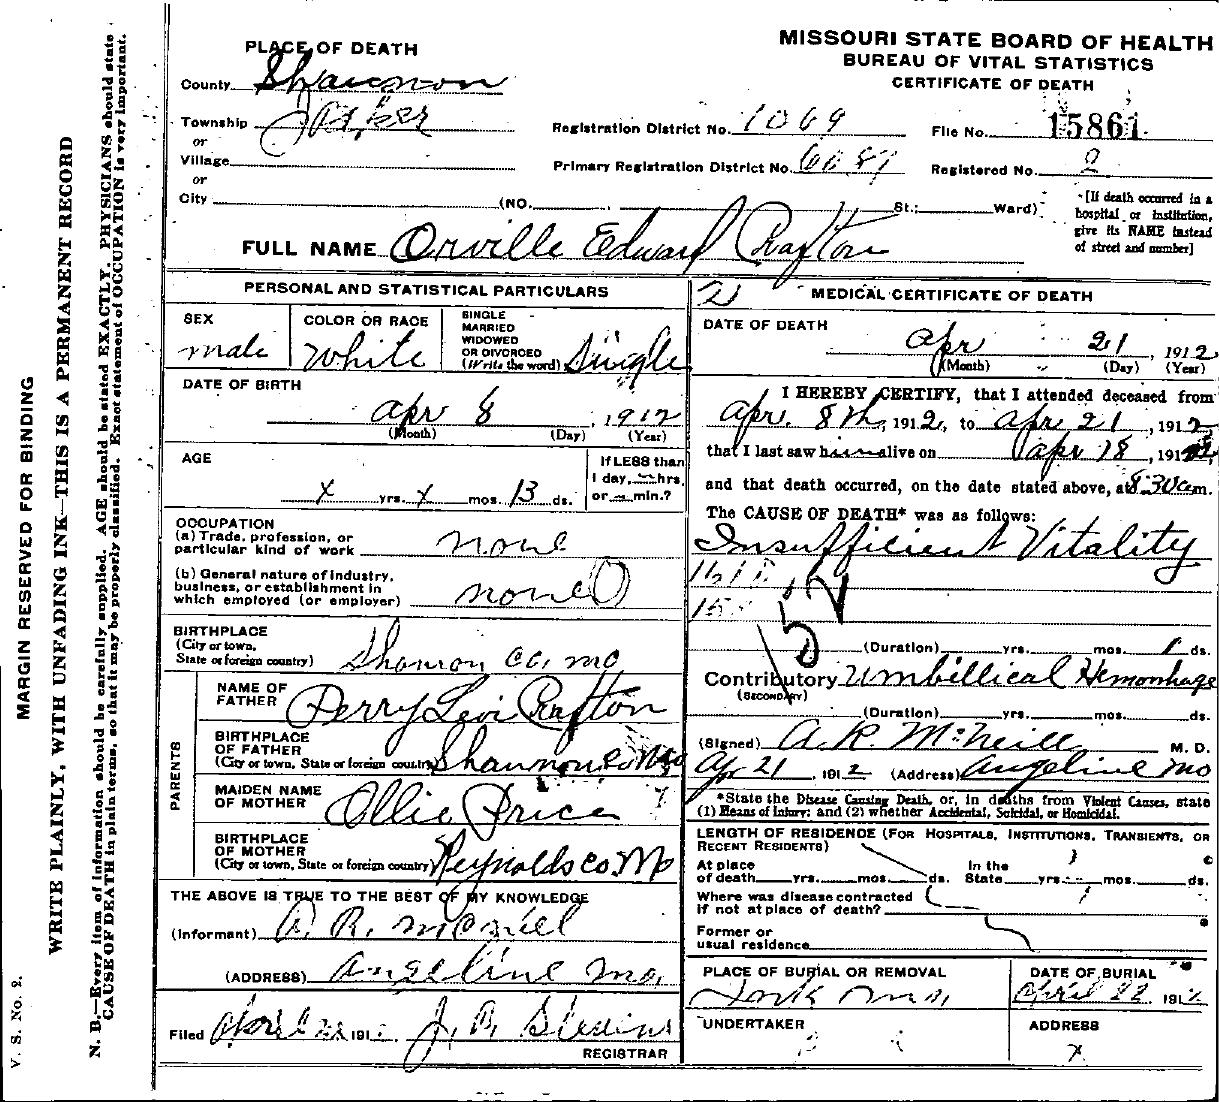 MISSOURI STATE BOARD OF HEALTH
BUREAU OF VITAL STATISTICS
CERTIFICATE OF DEATH
PLACE OF DEATH
County Shannon
Township
or
Village
or
City (NO. St.; Ward)
Registration District No. 1069
File No. 15861
Primary Registration District No.
Registered No. 2
[If death occurred in a
hospital or institution,
give its NAME instead
of street and number]
FULL NAME Orville Edward Crafton
PERSONAL AND STATISTICAL PARTICULARS
SEX
male
COLOR OR RACE
White
SINGLE
MARRIED
WIDOWED
OR DIVORCED
(Write the word) Single
DATE OF BIRTH
Apr 8, 1912
(Month) (Day) (Year)
AGE
x yrs. x mos. 13 ds.
If LESS than
1 day, hrs.
or min.?
OCCUPATION
(a) Trade, profession, or
particular kind of work none
(b) General nature of industry,
business, or establishment in
which employed (or employer) none
BIRTHPLACE
(City or town,
State or foreign country) Shannon Co, Mo
PARENTS
NAME OF
FATHER Perry Levi Crafton
BIRTHPLACE
OF FATHER
(City or town, State or foreign country) Shannon Co Mo
MAIDEN NAME
OF MOTHER Ollie Price
BIRTHPLACE
OF MOTHER
(City or town, State or foreign country) Reynolds Co Mo
THE ABOVE IS TRUE TO THE BEST OF MY KNOWLEDGE
(Informant) A. R. McNiel
(ADDRESS) Angeline Mo.
Filed April 1912 Stevens
REGISTRAR
2 MEDICAL CERTIFICATE OF DEATH
DATE OF DEATH
Apr 21, 1912
(Month) (Day) (Year)
I HEREBY CERTIFY, that I attended deceased from
Apr. 8th, 1912, to Apr 21, 1912,
that I last saw him alive on Apr 18, 1912,
and that death occurred, on the date stated above, at 8 30 a m.
The CAUSE OF DEATH* was as follows:
Insufficient Vitality
152
(Duration) yrs. mos. 1 ds.
Contributory Umbillical Hemorrhage
(SECONDARY)
(Duration) yrs. mos. ds.
(Signed) A. R. McNeill M. D.
Apr 21, 1912 (Address) Angeline Mo
*State the Disease Causing Death, or, in deaths from Violent Causes, state
(1) Means of Injury; and (2) whether Accidental, Suicidal, or Homicidal.
LENGTH OF RESIDENCE (FOR HOSPITALS, INSTITUTIONS, TRANSIENTS, OR
RECENT RESIDENTS)
At place
of death yrs. mos. ds.
In the
State yrs. mos. ds.
Where was disease contracted
if not at place of death?
Former or
usual residence
PLACE OF BURIAL OR REMOVAL
DATE OF BURIAL
April 22 1912
UNDERTAKER
ADDRESS
x
MARGIN RESERVED FOR BINDING
WRITE PLAINLY, WITH UNFADING INK—THIS IS A PERMANENT RECORD
N. B.—Every item of information should be carefully supplied. AGE should be stated EXACTLY. PHYSICIANS should state
CAUSE OF DEATH in plain terms, so that it may be properly classified. Exact statement of OCCUPATION is very important.
V. S. No. 2.